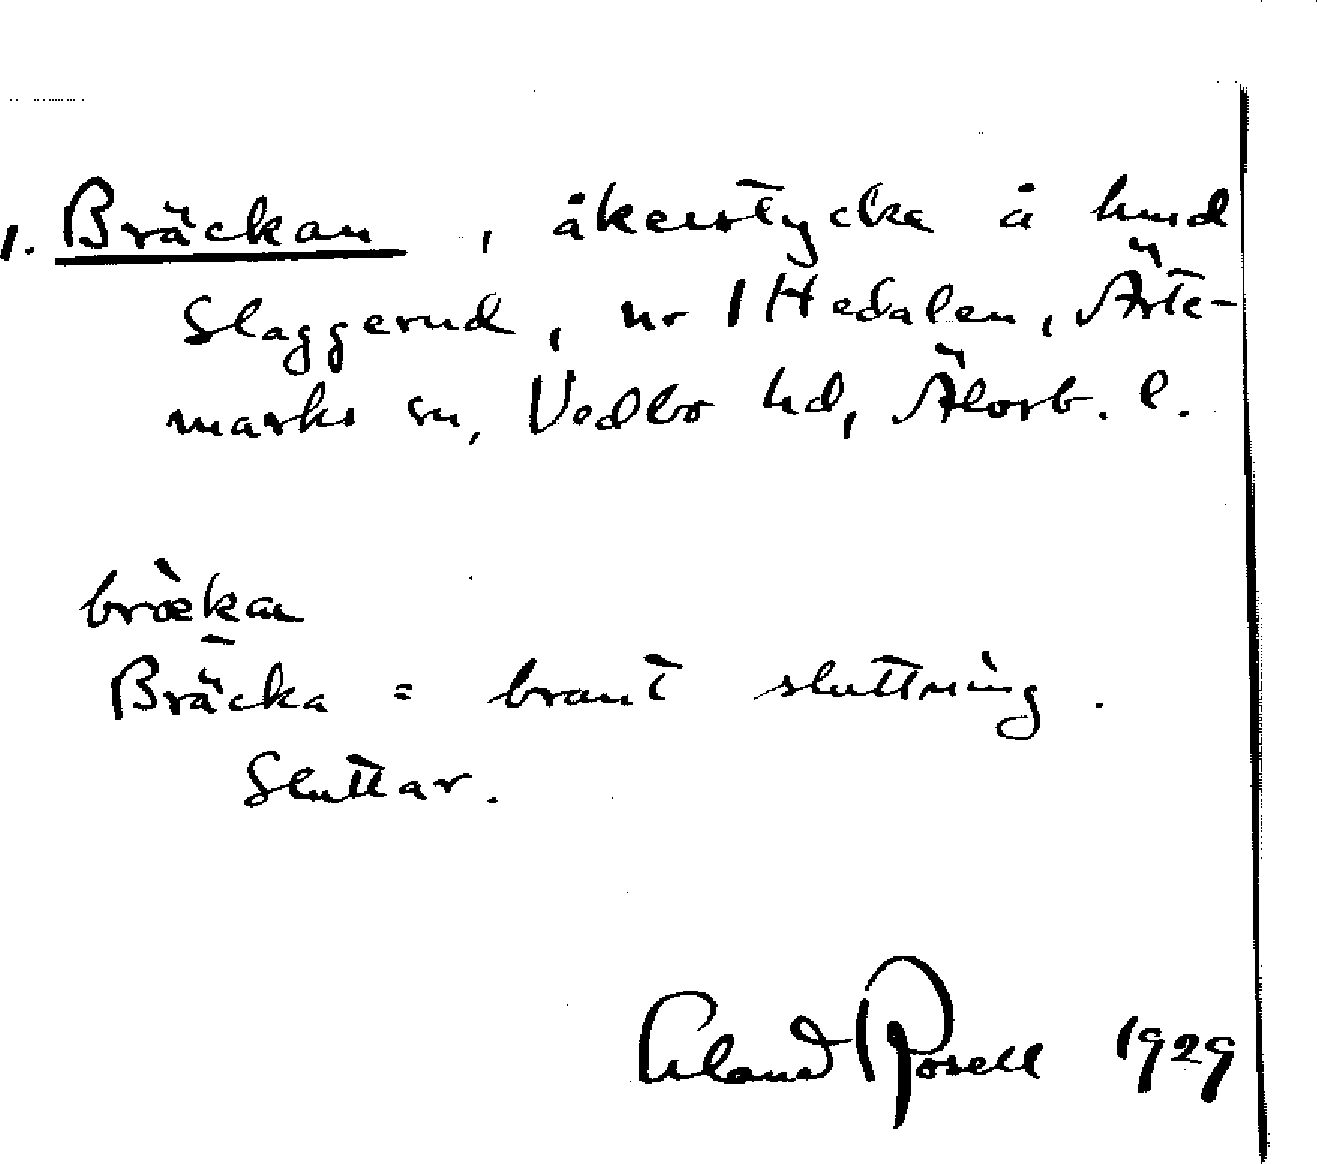 1. Bräckan, åkerstycke å hmd
Slaggerud, nr 1 Hedalen, Ärte-
marks sn, Vedbo hd, Älvsb. l.
bræ̀kan
Bräcka = brant sluttning.
Sluttar.
Erland Rosell 1929